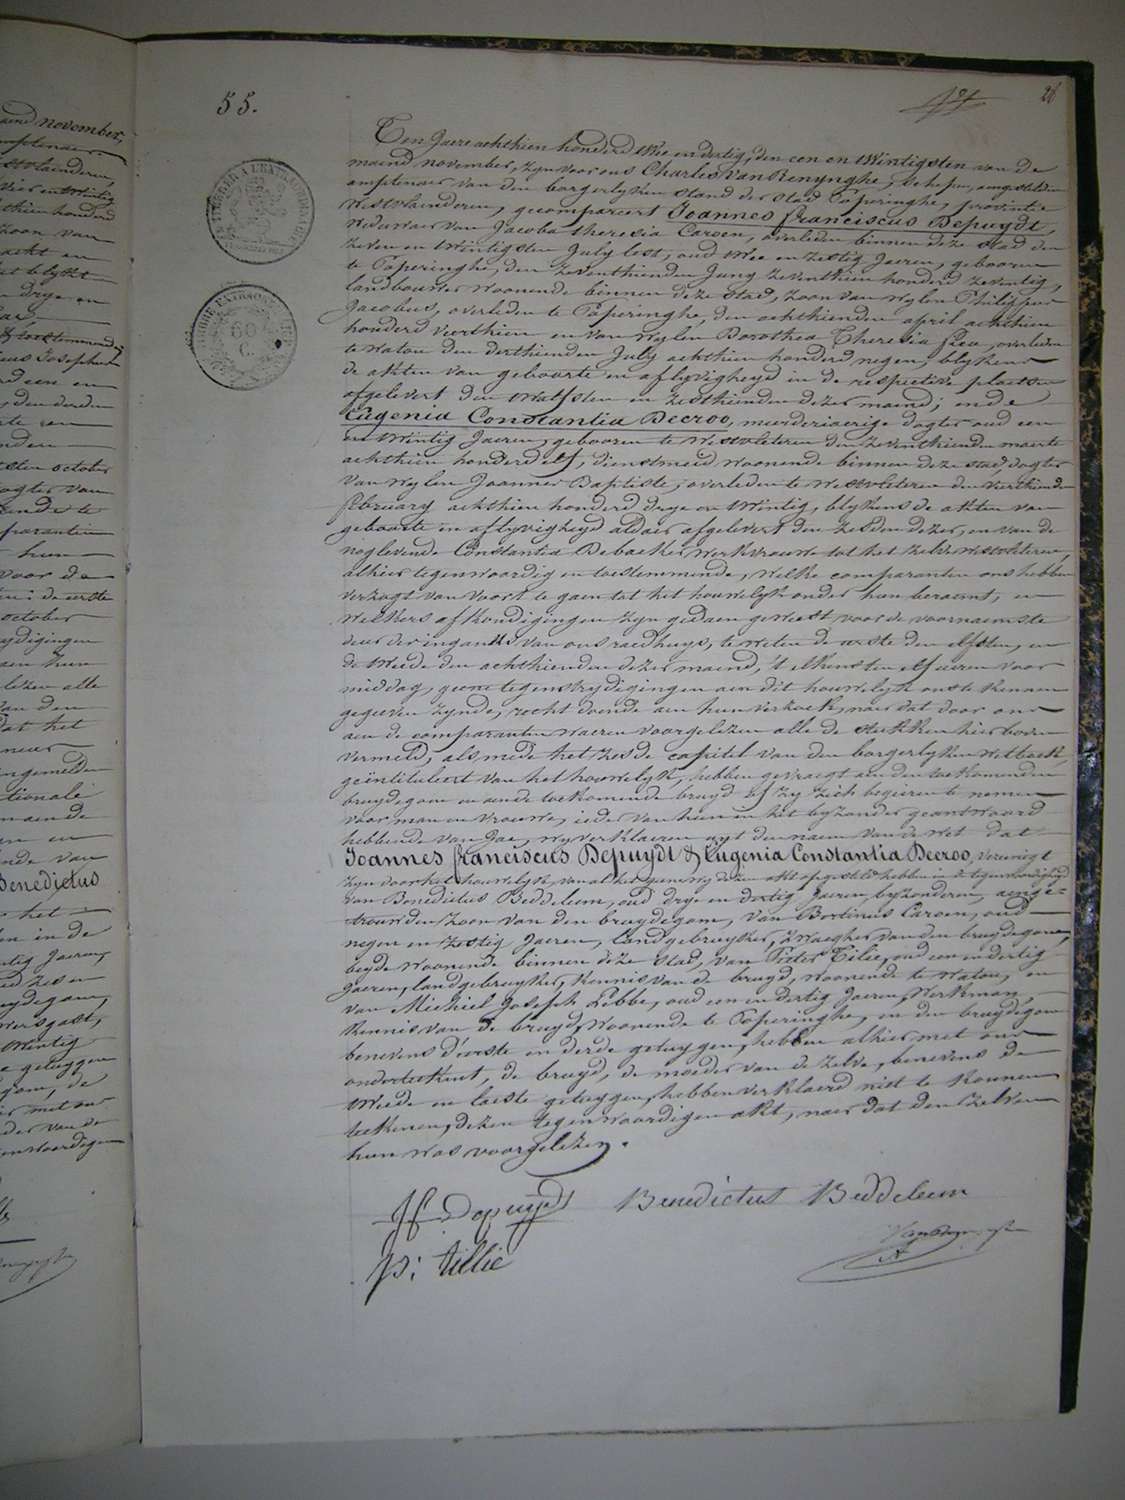 55.
28
Ten Jaere achthien honderd twee en dertig, den een en twintigsten van de
maend november, zyn voor ons Charles Van Renynghe, schepen, aengestelden
amptenaer van den borgerlyken stand der stad Poperinghe, provintie
Westvlaenderen, gecompareert Joannes franciscus Depuydt,
Weduwaer van Jacoba theresia Caroen, overleden binnen deze stad den
zeven en twintigsten July lest, oud twee en zestig Jaeren, gebooren
te Poperinghe, den zeventhienden Juny zeventhien honderd zeventig,
landbouwer woonende binnen deze stad, zoon van wylen Philippus
Jacobus, overleden te Poperinghe, den achthienden april achthien
honderd veerthien en van wylen Dorothea Theresia, overleden
te Watou den derthienden July achthien honderd negen, blykens
de akten van geboorte en aflyvigheyd in de respective plaetsen
afgelevert den twalfsten en zesthienden dezer maend; ende
Eugenia Constantia Decroo, meerderjaerige dogter oud een
en twintig Jaeren, gebooren te Westvleteren den zeventhienden maerte
achthien honderd elf, dienstmeid, woonende binnen deze stad, dogter
van wylen Joannes Baptiste, overleden te Westvleteren den vierthienden
february achthien honderd drye en twintig, blykens de akten van
geboorte en aflyvigheyd aldaer afgelevert den zesden dezer, en van de
noglevende Constantia Debacker werkvrouwe tot het zelve Westvleteren,
alhier tegenwoordig en toestemmende, welke comparanten ons hebben
verzogt van voort te gaen tot het houwelyk onder hun beraemt, en
welkers afkondigingen zyn gedaen geweest voor de voornaemste
deur der ingank van ons raedhuys, te weten de eerste den elfsten, en
de tweede den achthienden dezer maend, 't elkensten elf uren voor
middag, geene tegenstrydigingen aen dit houwelyk ons te kennen
gegeeven zynde, recht doende aen hun verzoek, naer dat door ons
aen de comparanten waeren voorgelezen alle de stukken hierboven
vermeld, als mede het zesde capitel van den borgerlyken wetboek
geintituleert van het houwelyk, hebben gevraegt aen den toekomenden
bruydegom en aen de toekomende bruyd of zy zich begeeren te nemen
voor man en vrouwe, ieder van hien in het byzonder geantwoord
hebbende van Jae, wy verklaeren uyt den naem van de wet dat
Joannes franciscus Depuydt & Eugenia Constantia Decroo, vereenigt
zyn door het houwelyk, van al het gene wy dezen akt opgesteld hebben in de tegenwoordigheyd
van Benedictus Beddeleem, oud drye en dertig Jaeren, byzonderen, aenge-
trouwden zoon van den bruydegom, van Bertinus Caroen, oud
negen en zestig Jaeren, landgebruyker, zwaegher van den bruydegom,
beyde woonende binnen deze stad, van Pieter Tillie, oud een en dertig
Jaeren, landgebruyker, kennis van de bruyd, woonende te Watou, en
van Michiel Joseph Lebbe, oud een en dertig Jaeren, Werkman,
kennis van de bruyd, woonende te Poperinghe, en den bruydegom
benevens d'eerste en derde getuygen, hebben alhier met ons
onderteekent, de bruyd, de moeder van de zelve, benevens de
tweede en laeste getuygen, hebben verklaerd niet te konnen
teekenen, dezen tegenwoordigen akt, naer dat den zelven
hun was voorgelezen.
J f Depuydt Benedictus Beddeleem
p: tillie